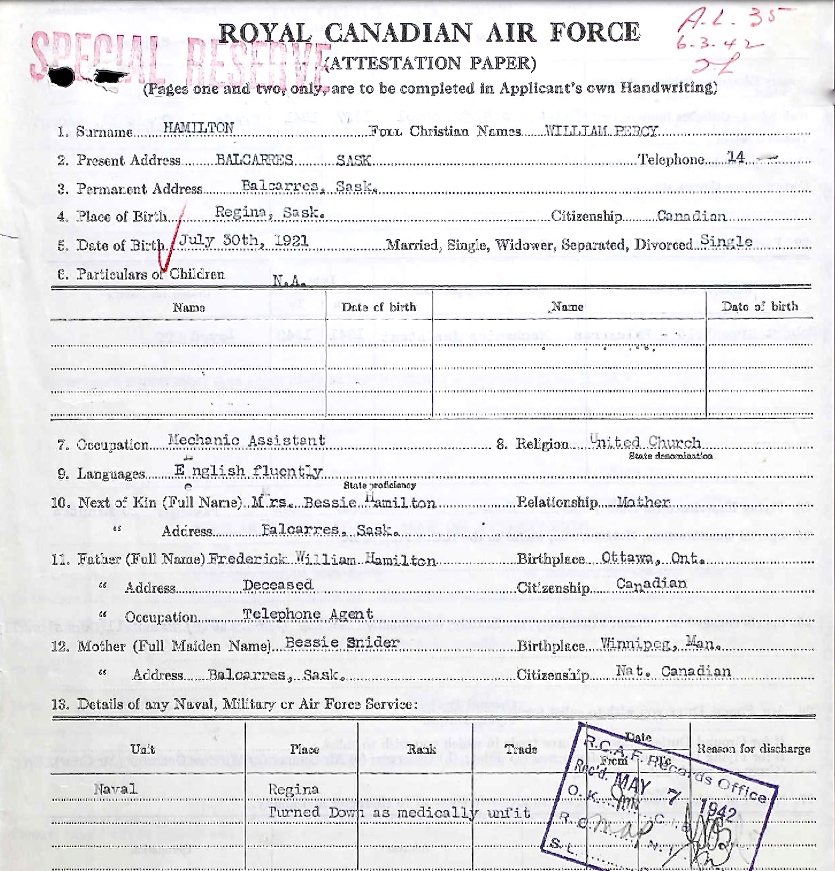 ROYAL CANADIAN AIR FORCE
A.L. 35
6.3.42
SPECIAL RESERVE
(ATTESTATION PAPER)
(Pages one and two, only, are to be completed in Applicant's own Handwriting)
1. Surname HAMILTON Full Christian Names WILLIAM PERCY
2. Present Address BALCARRES SASK Telephone 14
3. Permanent Address Balcarres, Sask.
4. Place of Birth Regina, Sask. Citizenship Canadian
5. Date of Birth July 30th, 1921 Married, Single, Widower, Separated, Divorced Single
6. Particulars of Children N.A.
Name Date of birth Name Date of birth
7. Occupation Mechanic Assistant 8. Religion United Church
State denomination
9. Languages English fluently
State proficiency
10. Next of Kin (Full Name) Mrs. Bessie Hamilton Relationship Mother
" Address Balcarres, Sask.
11. Father (Full Name) Frederick William Hamilton Birthplace Ottawa, Ont.
" Address Deceased Citizenship Canadian
" Occupation Telephone Agent
12. Mother (Full Maiden Name) Bessie Snider Birthplace Winnipeg, Man.
" Address Balcarres, Sask. Citizenship Nat. Canadian
13. Details of any Naval, Military or Air Force Service:
Unit Place Rank Trade Date From Reason for discharge
Naval Regina
Turned Down as medically unfit
R.C.A.F. Records Office
Rec'd. MAY 7 1942
O.K.
S.L.